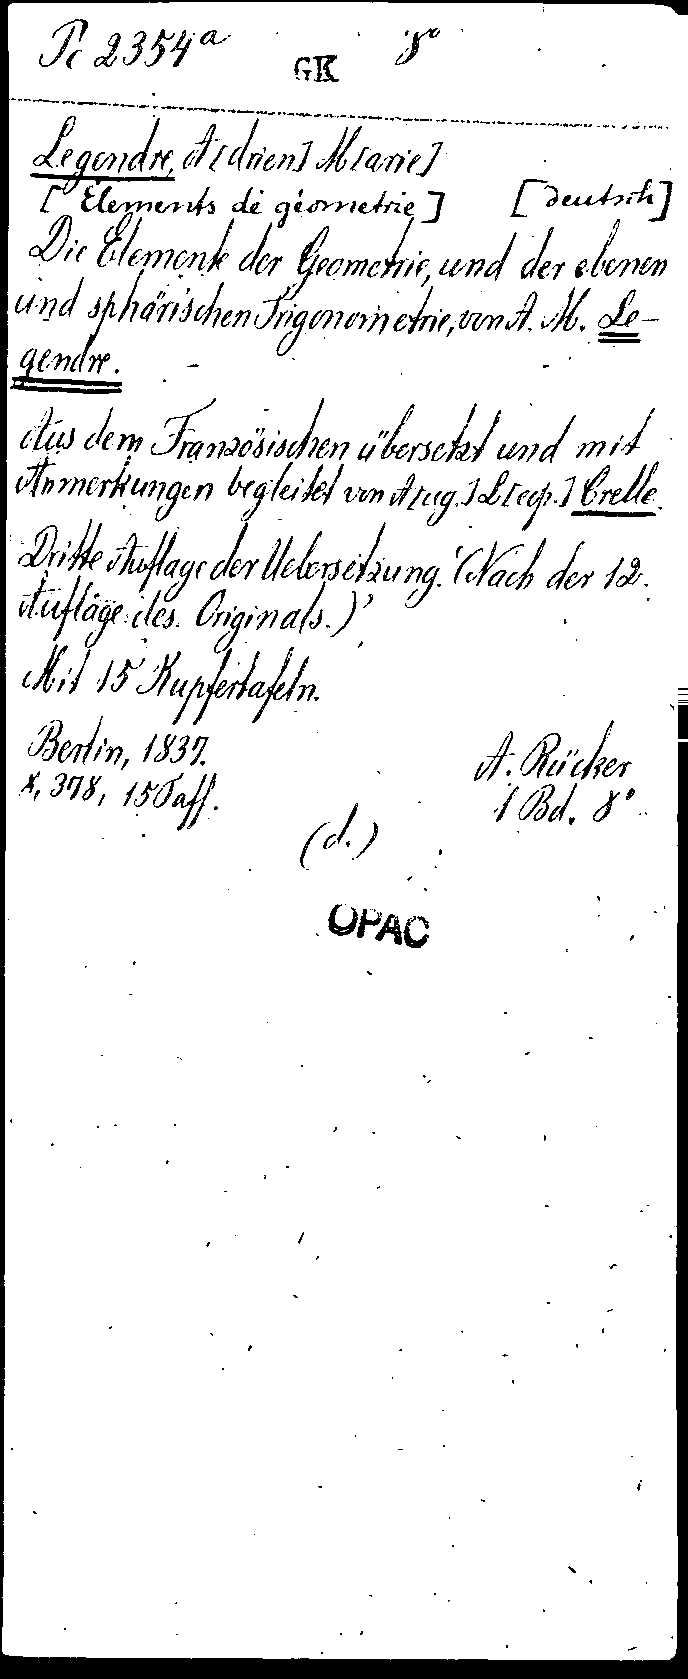 Pc 2354a 8°
GK
Legendre, A[drien] M[arie]
[Elements de géometrie] [Deutsch]
Die Elemente der Geometrie, und der ebenen
und sphärischen Trigonometrie, von A. M. Le-
gendre.
Aus dem Französischen übersetzt und mit
Anmerkungen begleitet von A[ug.] L[eop.] Crelle.
Dritte Auflage der Uebersetzung. (Nach der 12.
Auflage des Originals.)
Mit 15 Kupfertafeln.
Berlin, 1837. A. Rücker
X, 378, 15 Taff. 1 Bd. 8°
(d.)
OPAC